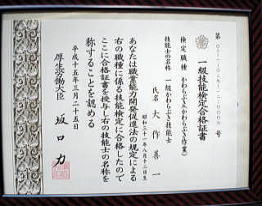 一級技能検定合格証書
検定職種 かわらぶき(かわらぶき作業)
技能士の名称 一級かわらぶき技能士
氏名 大作 善一
昭和三十一年八月十二日生
あなたは職業能力開発促進法の規定による
右の職種に係る技能検定に合格したので
ここに合格証書を授与し右の技能士の名称を
称することを認める
平成十五年三月二十五日
厚生労働大臣 坂口 力